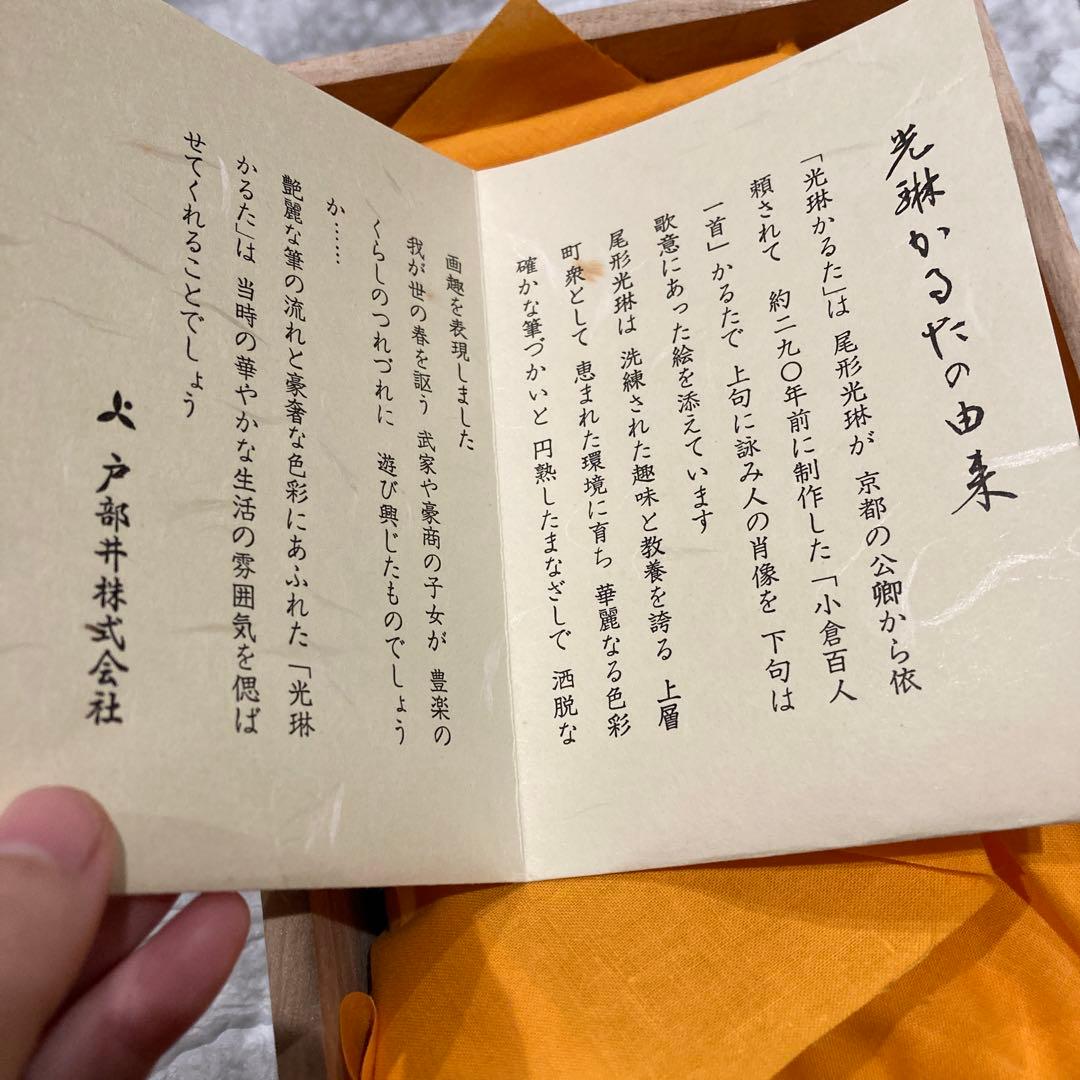 光琳かるたの由来
「光琳かるた」は 尾形光琳が 京都の公卿から依
頼されて 約二九〇年前に制作した「小倉百人
一首」かるたで 上句に詠み人の肖像を 下句は
歌意にあった絵を添えています
尾形光琳は 洗練された趣味と教養を誇る 上層
町衆として 恵まれた環境に育ち 華麗なる色彩
確かな筆づかいと 円熟したまなざしで 洒脱な
画趣を表現しました
我が世の春を謳う 武家や豪商の子女が 豊楽の
くらしのつれづれに 遊び興じたものでしょう
か……
艶麗な筆の流れと豪奢な色彩にあふれた「光琳
かるた」は 当時の華やかな生活の雰囲気を偲ば
せてくれることでしょう
戸部井株式会社